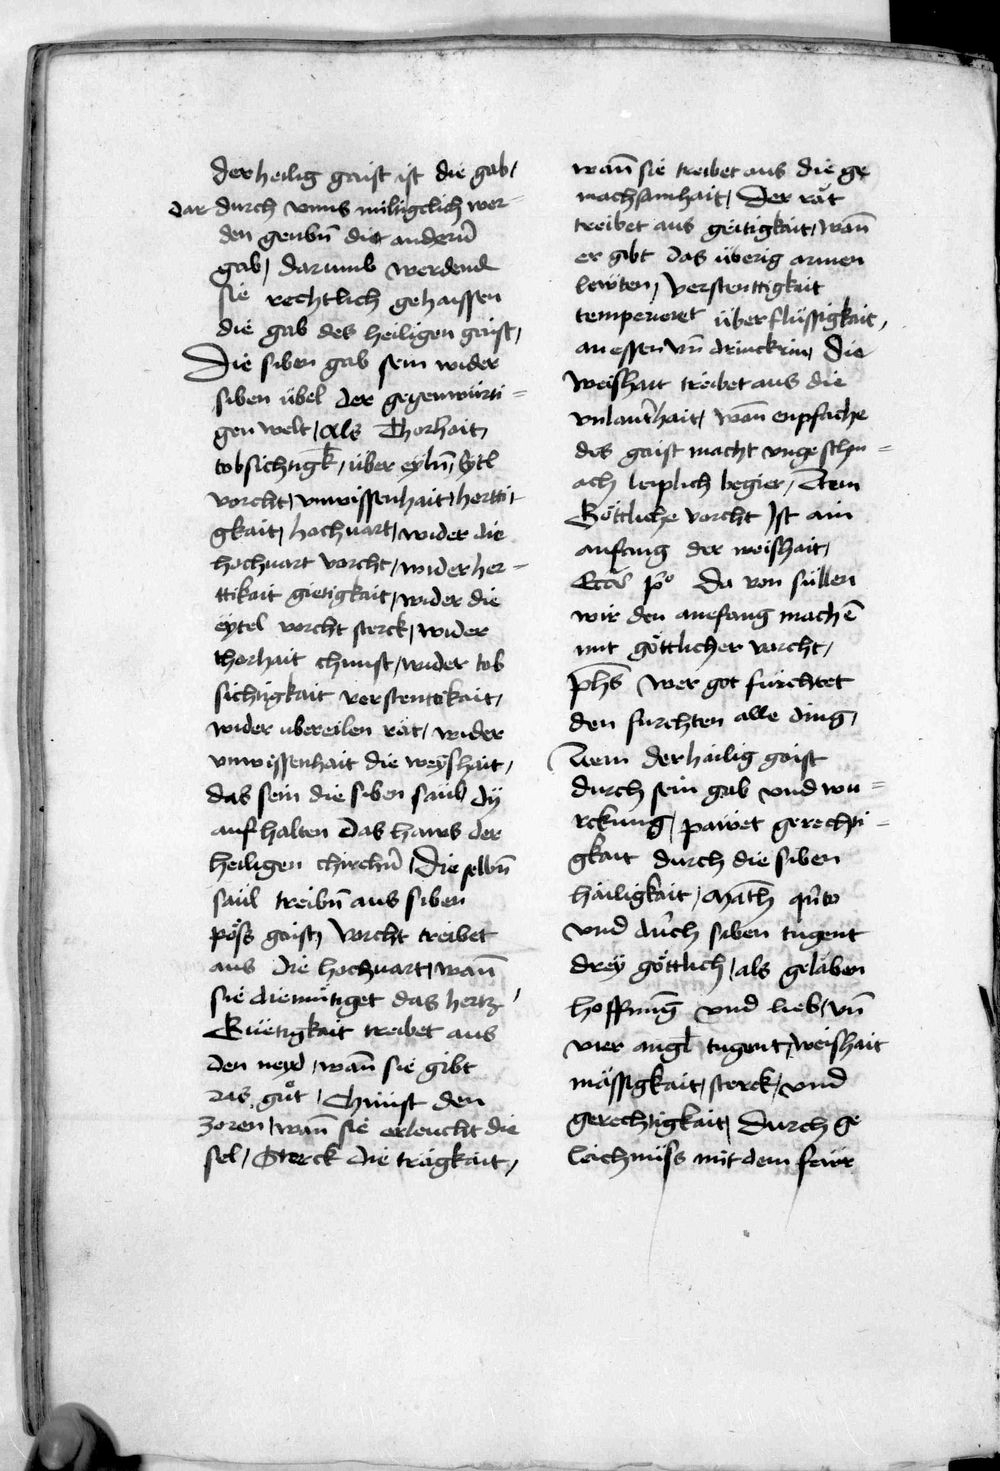 der heilig gaist ist die gab /
dar durch vnns miltigclich wer=
den gebn̄ die andern̄
gab / darumb werdend
sie rechtlich gehaissen
die gab des heiligen gaist /
Die siben gab sein wider
siben übel der gegenwürti=
gen welt / Als Thorhait /
tobsichtigk̄ / über eyln̄ / eytl
vorcht / vnwissenhait / hertti
gkait / hochuart / wider die
hochuart vorcht / wider her=
ttikait gietigkait / wider die
eytel vorcht sterck / wider
thorhait chunst / wider tob
sichtigkait verstentikait /
wider ubereilen rät / wider
vnwissenhait die weyshait /
das sein die siben saül dÿ
auf halten das haws der
heiligen chirchn̄ / Die selbn̄
saül treibn̄ aus siben
pöss gaist / Vorcht treibet
aus die hochuart / wan̄
sie diemütiget das hertz /
Guëtigkait treibet aus
den neyd / wan̄ sie gibt
das güt / Chunst den
zoren / wan̄ sie erleucht die
sel / Sterck die trägkait /
wan̄ sie treibet aus die ge
machsamhait / Der rät
treibet aus geitigkait / wan̄
er gibt das überig armen
lewten / Verstenttigkait
temperieret überflüssigkait /
an essen vn̄ drinckein / Die
weishait treibet aus die
vnlautr̄hait / wan̄ enpfache
des gaist macht vngeschm=
ach leiplich begier / Item
Göttliche vorcht Ist ain
anfang der weishait /
Eccī pº Da von süllen
wir den anefang machē
mit göttlicher vorcht /
ph̄s Wer got fürchtet
den furchten alle ding /
Item der hailig gaist
durch sein gab vnd wu=
rckung / pawet gerechti=
gkait durch die siben
häiligkait / Math̄ qn̄to
vnd dūrch siben tugent
drey göttlich / als gelaben
hoffnunḡ vnd lieb / vn̄
vier angl tugent / weishait
mässigkait / sterck / vnd
gerechtigkait / Durch ge
leichnüss mit dem fewr